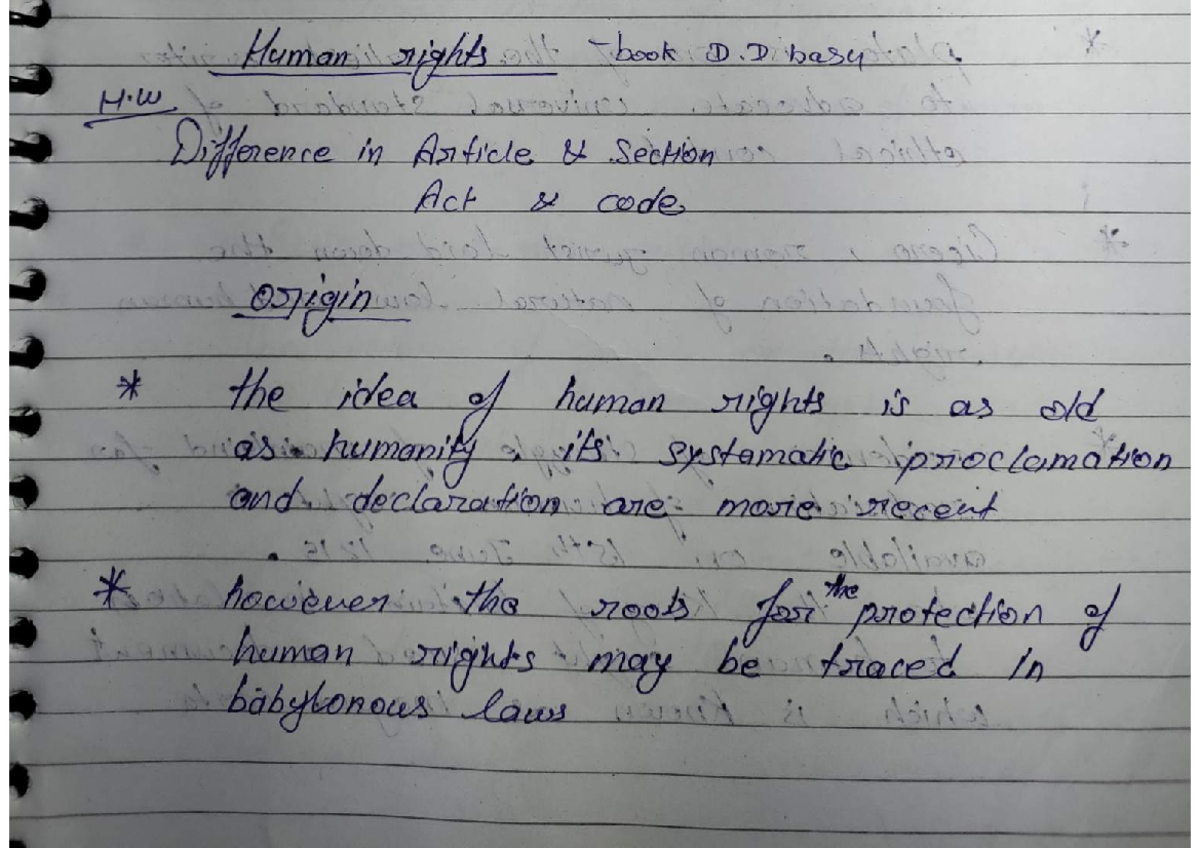 Human rights - book D.D basu
H.W
Difference in Article & Section
Act & code
Origin
* the idea of human rights is as old
as humanity, its systematic proclamation
and declaration are more recent
* however the roots for the protection of
human rights may be traced in
babylonous laws